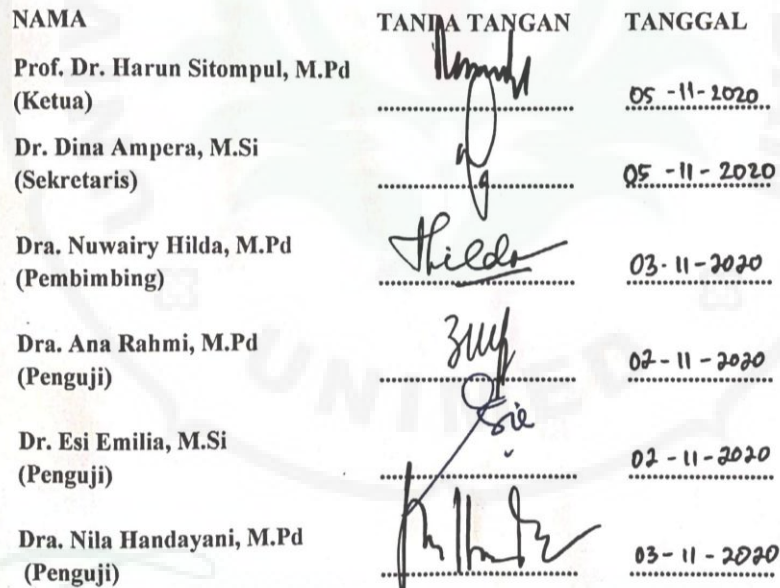 NAMA TANDA TANGAN TANGGAL
Prof. Dr. Harun Sitompul, M.Pd
(Ketua) 05 -11- 2020
Dr. Dina Ampera, M.Si
(Sekretaris) 05 -11 - 2020
Dra. Nuwairy Hilda, M.Pd Hilda
(Pembimbing) 03 - 11 - 2020
Dra. Ana Rahmi, M.Pd
(Penguji) 02 - 11 - 2020
Dr. Esi Emilia, M.Si
(Penguji) 02 - 11 - 2020
Dra. Nila Handayani, M.Pd
(Penguji) 03 - 11 - 2020
UNIMED